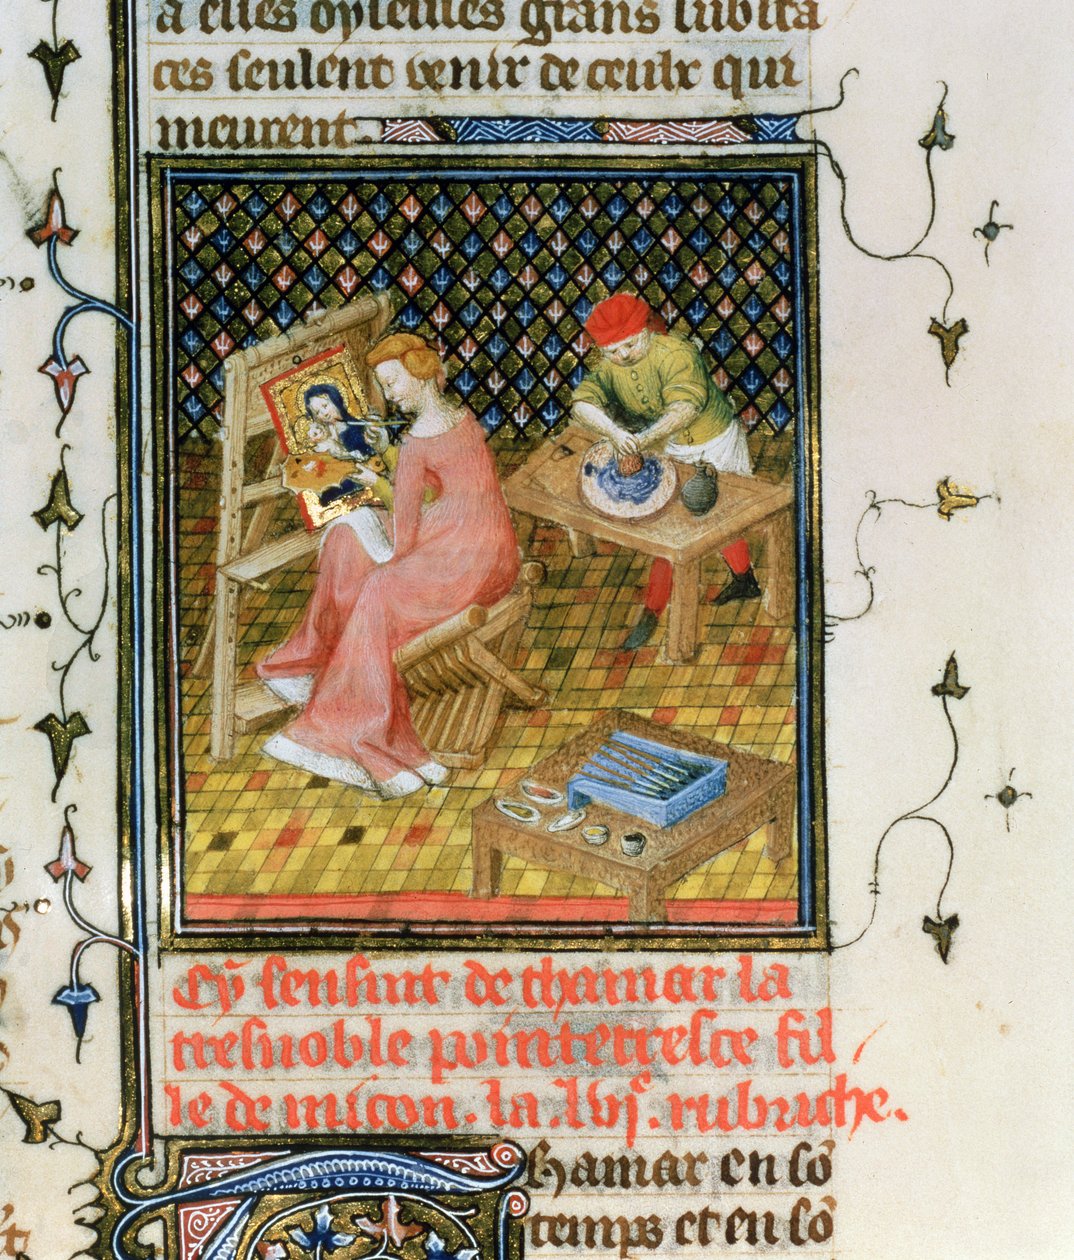 a elles oyseuses grans lubrita
ces seulent venir de ceulx qui
meurent.
Cy sensuit de thamar la
tresnoble pointerresce fil
le de micon. la .lvjͤ. rubriche.
Thamar en sō
temps et en sō